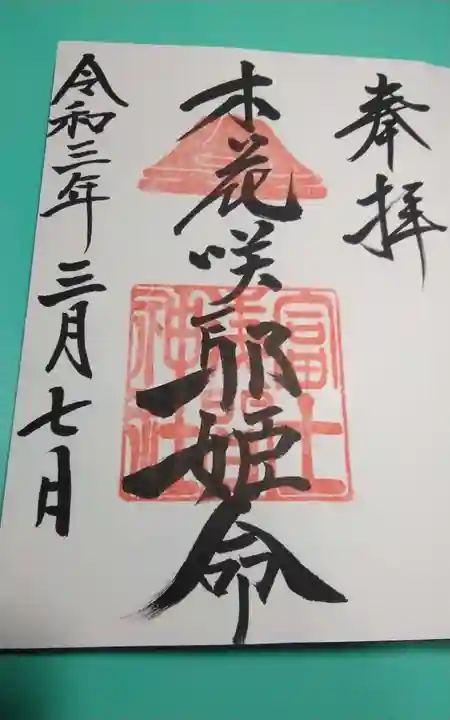 奉拝
木花咲耶姫命
富士
神社
令和三年三月七日